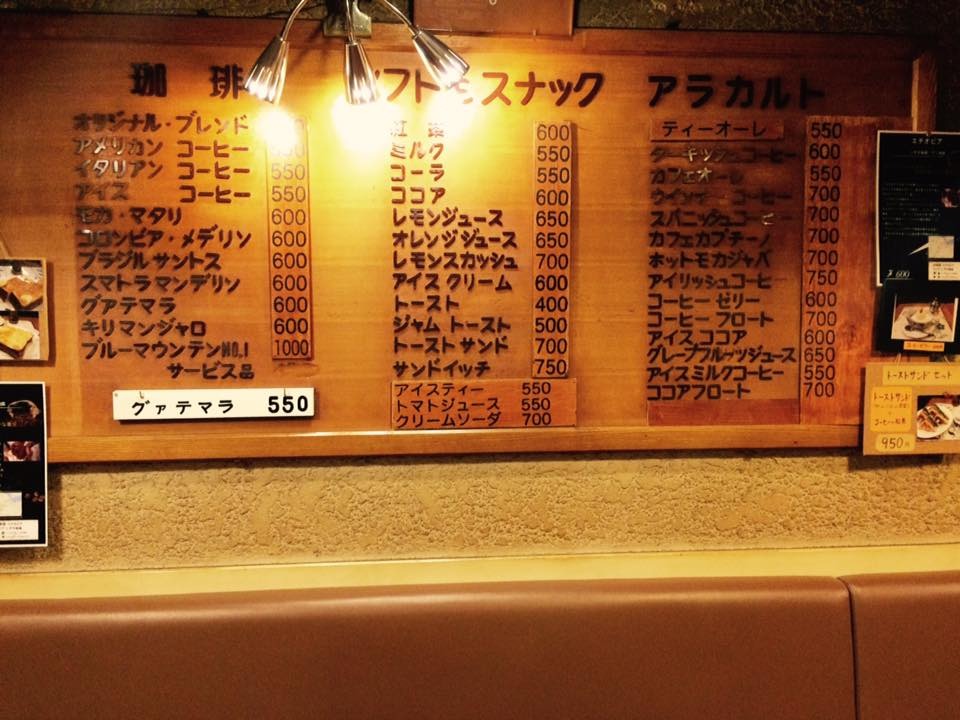 珈琲
オリジナル・ブレンド
アメリカン コーヒー
イタリアン コーヒー 550
アイス コーヒー 550
モカ・マタリ 600
コロンビア・メデリン 600
ブラジルサントス 600
スマトラマンデリン 600
グァテマラ 600
キリマンジャロ 600
ブルーマウンテンNO.1 1000
サービス品
グァテマラ 550
ソフト&スナック
紅茶 600
ミルク 550
コーラ 550
ココア 600
レモンジュース 650
オレンジジュース 650
レモンスカッシュ 700
アイスクリーム 600
トースト 400
ジャムトースト 500
トーストサンド 700
サンドイッチ 750
アイスティー 550
トマトジュース 550
クリームソーダ 700
アラカルト
ティーオーレ 550
ターキッシュコーヒー 600
カフェオーレ 550
ウインナーコーヒー 700
スパニッシュコーヒー 700
カフェカプチーノ 700
ホットモカジャバ 700
アイリッシュコーヒー 750
コーヒーゼリー 600
コーヒーフロート 700
アイスココア 600
グレープフルーツジュース 650
アイスミルクコーヒー 550
ココアフロート 700
エチオピア
¥600
トーストサンドセット
トーストサンド
+
コーヒー
950円